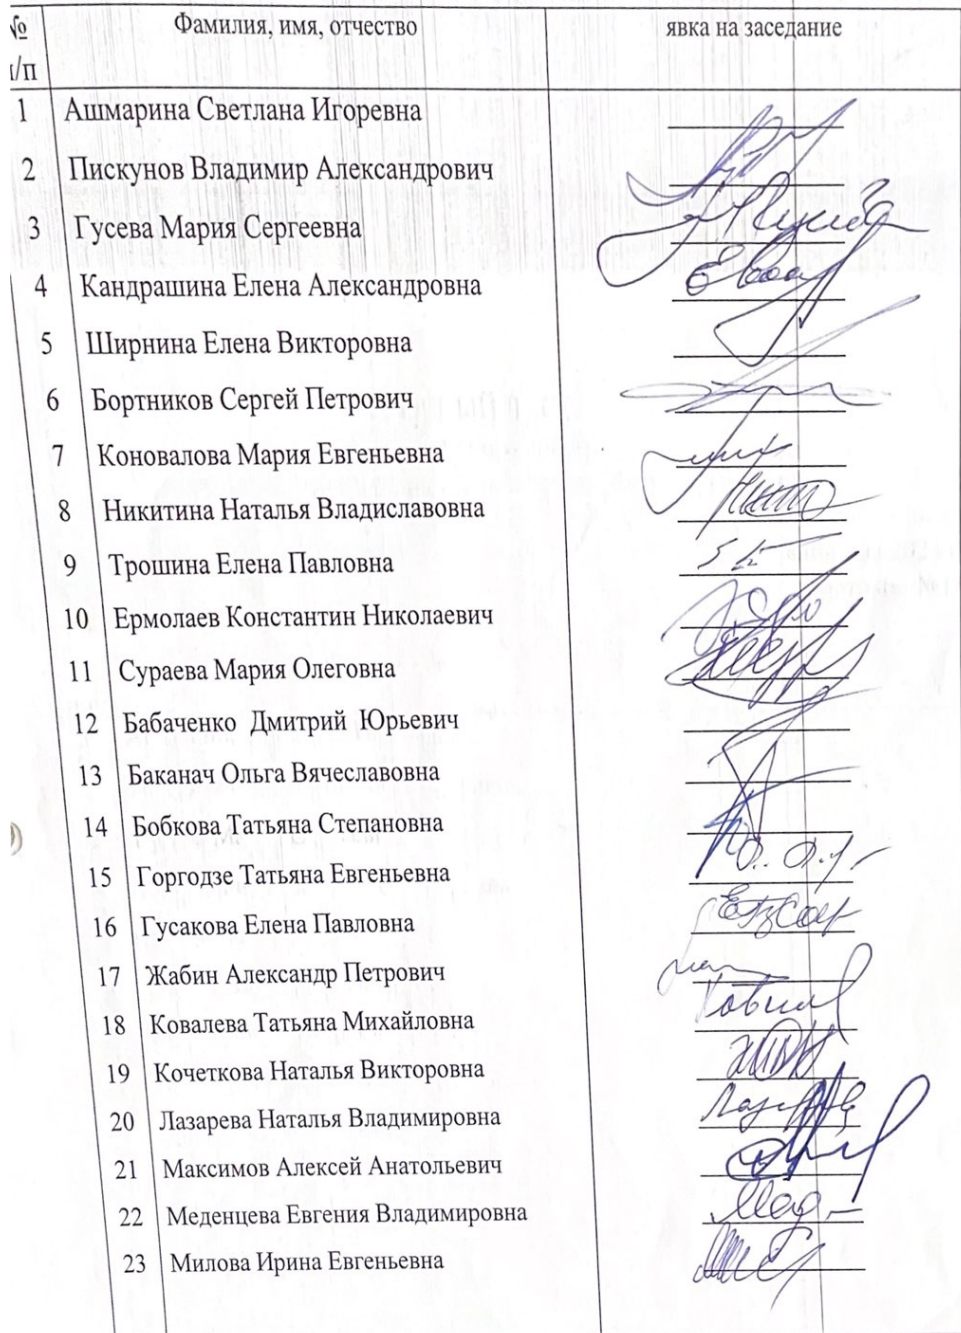 № Фамилия, имя, отчество явка на заседание
п/п
1 Ашмарина Светлана Игоревна
2 Пискунов Владимир Александрович
3 Гусева Мария Сергеевна
4 Кандрашина Елена Александровна
5 Ширнина Елена Викторовна
6 Бортников Сергей Петрович
7 Коновалова Мария Евгеньевна
8 Никитина Наталья Владиславовна
9 Трошина Елена Павловна
10 Ермолаев Константин Николаевич
11 Сураева Мария Олеговна
12 Бабаченко Дмитрий Юрьевич
13 Баканач Ольга Вячеславовна
14 Бобкова Татьяна Степановна
15 Горгодзе Татьяна Евгеньевна
16 Гусакова Елена Павловна
17 Жабин Александр Петрович
18 Ковалева Татьяна Михайловна
19 Кочеткова Наталья Викторовна
20 Лазарева Наталья Владимировна
21 Максимов Алексей Анатольевич
22 Меденцева Евгения Владимировна
23 Милова Ирина Евгеньевна